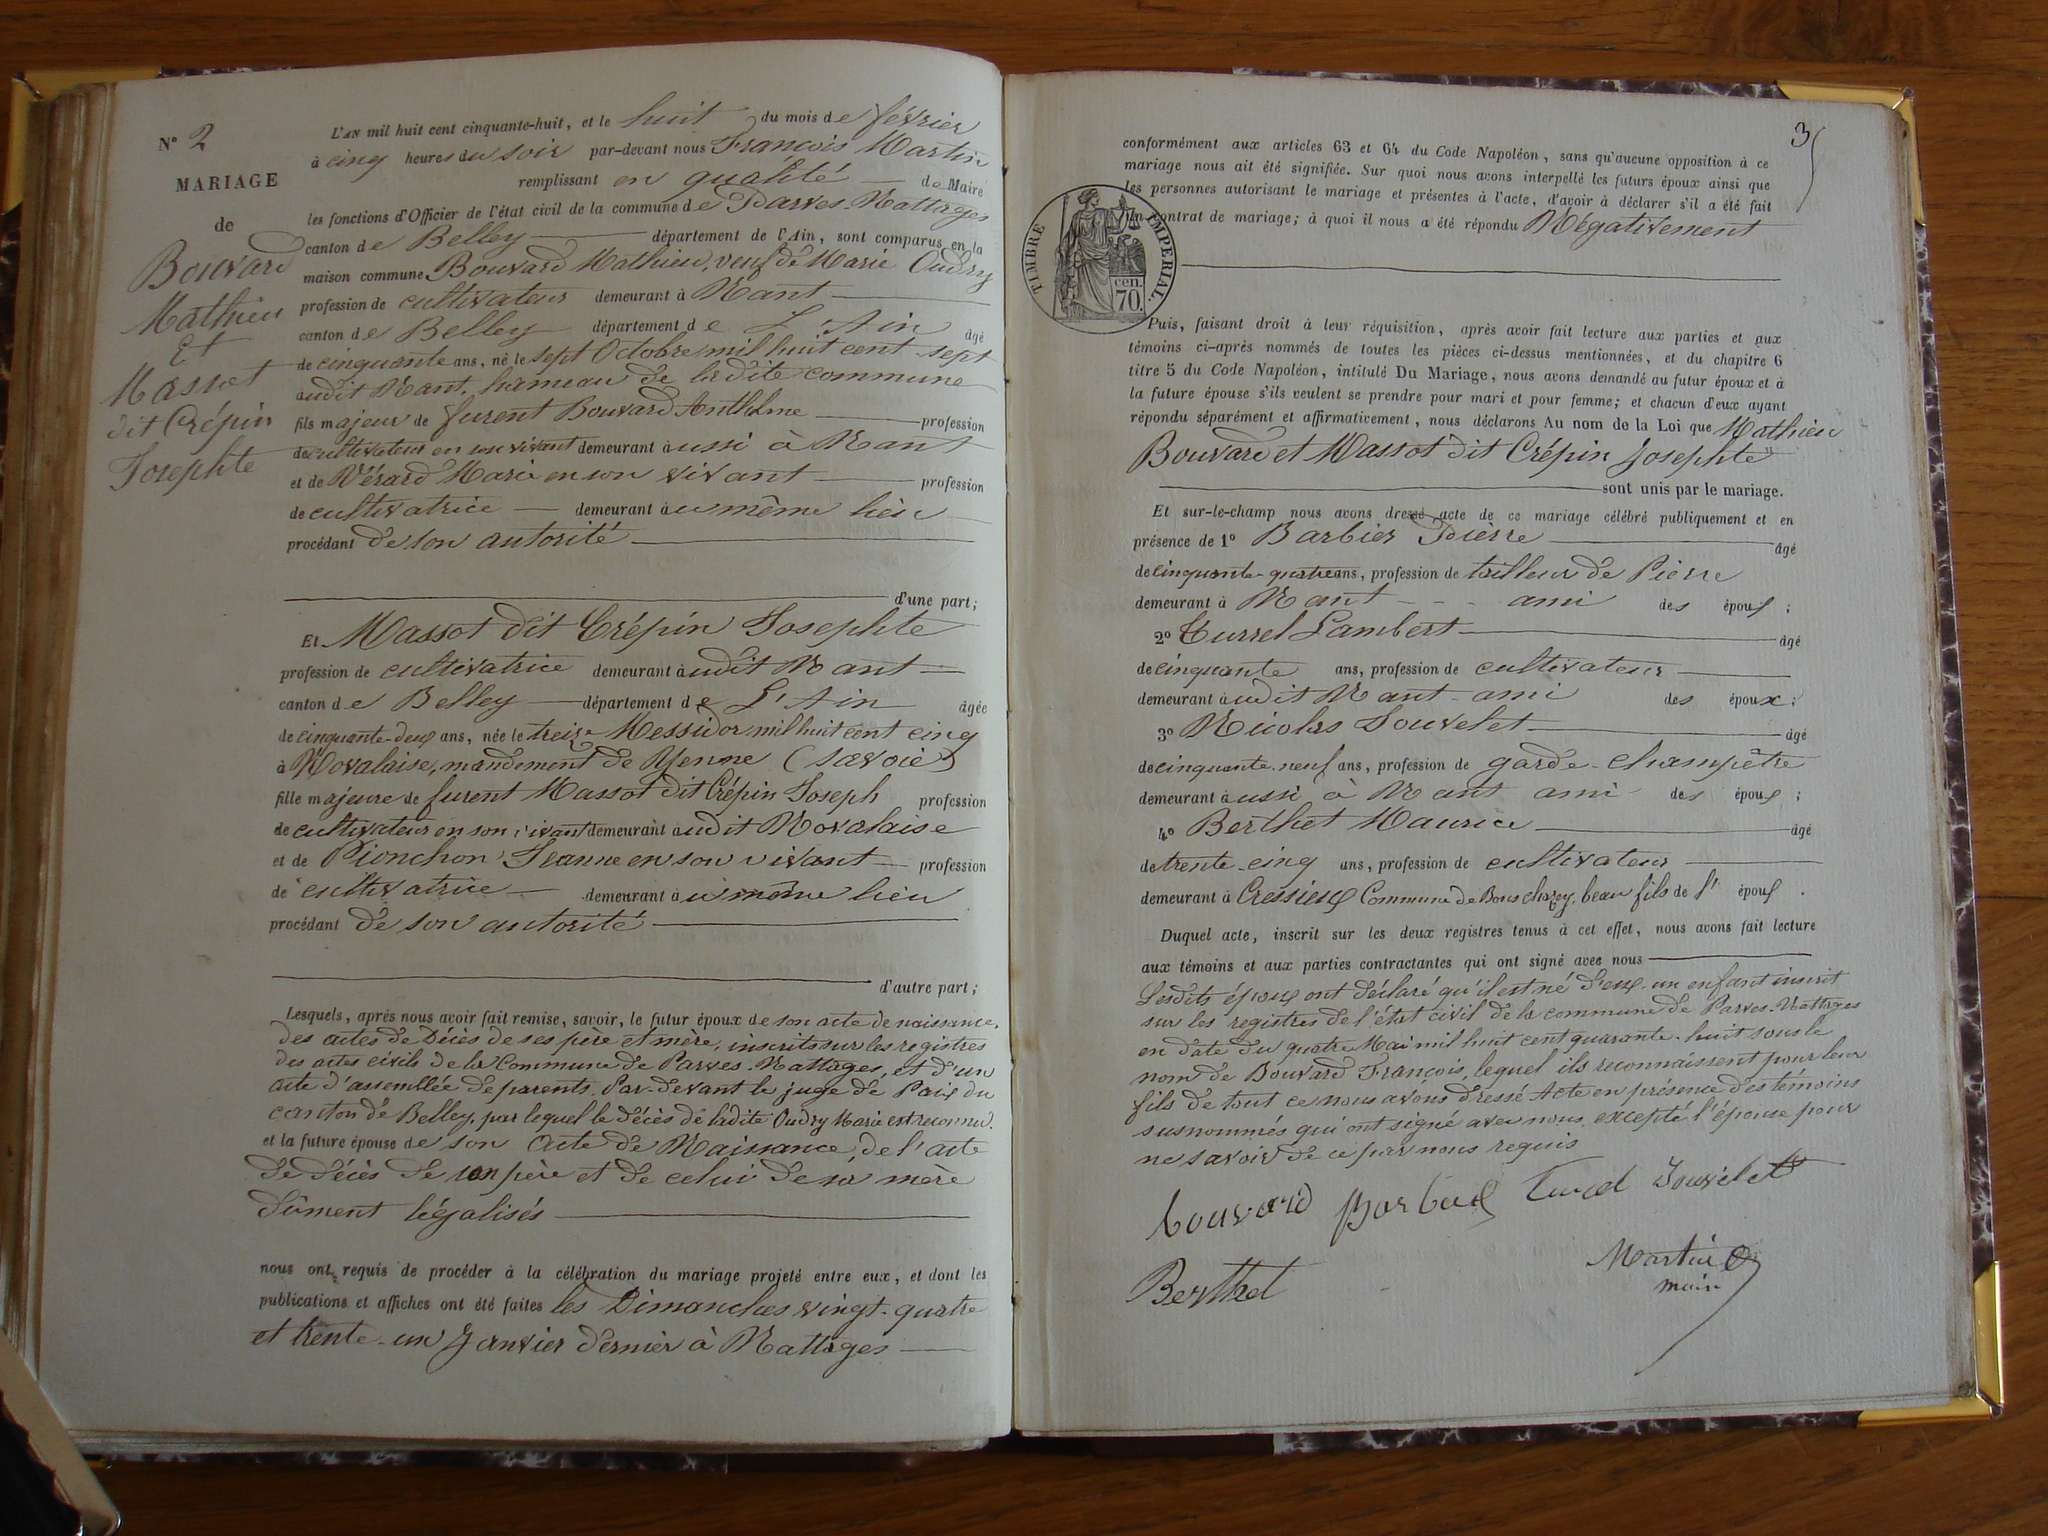 N° 2
MARIAGE
de
Bouvard
Mathieu
Et
Massot
dit Crépin
Josephte
L'AN mil huit cent cinquante-huit, et le huit du mois de février
à cinq heures du soir par-devant nous François Martin
remplissant en qualité de Maire
les fonctions d'Officier de l'état civil de la commune de Parves-Nattages
canton de Belley département de l'Ain, sont comparus en la
maison commune Bouvard Mathieu, veuf de Marie Oudry
profession de cultivateur demeurant à Nant
canton de Belley département de L'Ain âgé
de cinquante ans, né le sept Octobre mil huit cent sept
audit Nant, hameau de ladite commune
fils majeur de furent Bouvard Anthelme profession
de cultivateur en son vivant demeurant aussi à Nant
et de Vérard Marie en son vivant profession
de cultivatrice demeurant au même lieu
procédant de son autorité
d'une part;
Et Massot dit Crépin Josephte
profession de cultivatrice demeurant audit Nant
canton de Belley département de L'Ain âgée
de cinquante-deux ans, née le treize Messidor mil huit cent cinq
à Novalaise, mandement de Yenne (Savoie)
fille majeure de furent Massot dit Crépin Joseph profession
de cultivateur en son vivant demeurant audit Novalaise
et de Pionchon Jeanne en son vivant profession
de cultivatrice demeurant au même lieu
procédant de son autorité
d'autre part;
Lesquels, après nous avoir fait remise, savoir, le futur époux de son acte de naissance,
des actes de Décès de ses père et mère, inscrits sur les registres
des actes civils de la Commune de Parves-Nattages, et d'un
acte d'assemblée de parents, Par-devant le juge de Paix du
canton de Belley, par lequel le décès de ladite Oudry Marie est reconnu.
et la future épouse de son Acte de Naissance, de l'acte
de décès de son père et de celui de sa mère
dûment légalisés
nous ont requis de procéder à la célébration du mariage projeté entre eux, et dont les
publications et affiches ont été faites les Dimanches vingt-quatre
et trente-un Janvier dernier à Nattages
3
conformément aux articles 63 et 64 du Code Napoléon, sans qu'aucune opposition à ce
mariage nous ait été signifiée. Sur quoi nous avons interpellé les futurs époux ainsi que
les personnes autorisant le mariage et présentes à l'acte, d'avoir à déclarer s'il a été fait
un contrat de mariage; à quoi il nous a été répondu Négativement
TIMBRE IMPERIAL.
cen.
70.
Puis, faisant droit à leur réquisition, après avoir fait lecture aux parties et aux
témoins ci-après nommés de toutes les pièces ci-dessus mentionnées, et du chapitre 6
titre 5 du Code Napoléon, intitulé Du Mariage, nous avons demandé au futur époux et à
la future épouse s'ils veulent se prendre pour mari et pour femme; et chacun d'eux ayant
répondu séparément et affirmativement, nous déclarons Au nom de la Loi que Mathieu
Bouvard et Massot dit Crépin Josephte
sont unis par le mariage.
Et sur-le-champ nous avons dressé acte de ce mariage célébré publiquement et en
présence de 1° Barbier Pierre âgé
de cinquante-quatre ans, profession de tailleur de Pierre
demeurant à Nant ami des époux;
2° Turrel Lambert âgé
de cinquante ans, profession de cultivateur
demeurant audit Nant ami des époux;
3° Nicolas Jouvelet âgé
de cinquante-neuf ans, profession de garde-champêtre
demeurant aussi à Nant ami des époux;
4° Berthet Maurice âgé
de trente-cinq ans, profession de cultivateur
demeurant à Cressieux Commune de beau fils de l'époux.
Duquel acte, inscrit sur les deux registres tenus à cet effet, nous avons fait lecture
aux témoins et aux parties contractantes qui ont signé avec nous
Lesdits époux ont déclaré qu'il est né d'eux un enfant inscrit
sur les registres de l'état civil de la commune de Parves-Nattages
en date du quatre Mai mil huit cent quarante-huit sous le
nom de Bouvard François, lequel ils reconnaissent pour leur
fils de tout ce nous avons dressé Acte en présence des témoins
susnommés qui ont signé avec nous, excepté l'épouse pour
ne savoir de ce par nous requis
bouvard Turrel Jouvelet
Berthet
Martin
maire